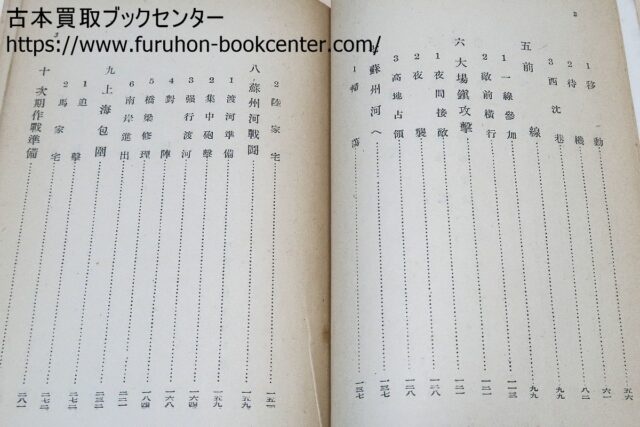 古本買取ブックセンター
https://www.furuhon-bookcenter.com/
2
1 移動 五六
2 待機 六一
3 西沈巷 八二
五 前線 九九
1 一線參加 九九
2 敵前橫行 一一三
六 大場鎭攻擊 一二一
1 夜間接敵 一二一
2 夜襲 一二八
3 高地占領
蘇州河へ 一三七
1 掃蕩 一三七
2 陸家宅 一五一
八 蘇州河戰鬪 一五九
1 渡河準備 一五九
2 集中砲擊 一五九
3 强行渡河 一六四
4 對陣 一六八
5 橋梁修理 一八四
6 南岸進出 二二一
九 上海包圍 二三二
1 追擊 二七二
2 馬家宅 二七二
十 次期作戰準備 二八一